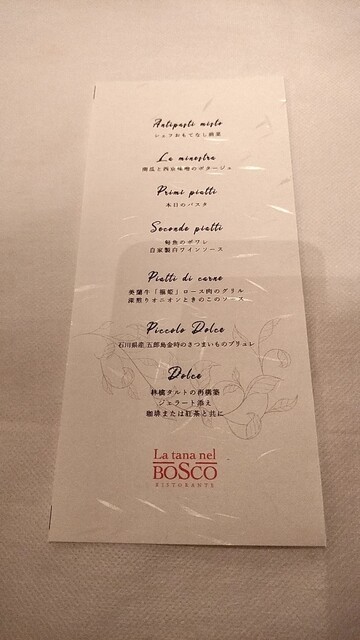 Antipasti misto
シェフおもてなし前菜
La minestra
南瓜と西京味噌のポタージュ
Primi piatti
本日のパスタ
Seconde piatti
旬魚のポワレ
自家製白ワインソース
Piatti di carne
美蘭牛「銀姫」ロース肉のグリル
深煎りオニオンときのこのソース
Piccolo Dolce
石川県産 五郎島金時のさつまいものブリュレ
Dolce
林檎タルトの再構築
ジェラート添え
珈琲または紅茶と共に
La tana nel
BOSCO
RISTORANTE